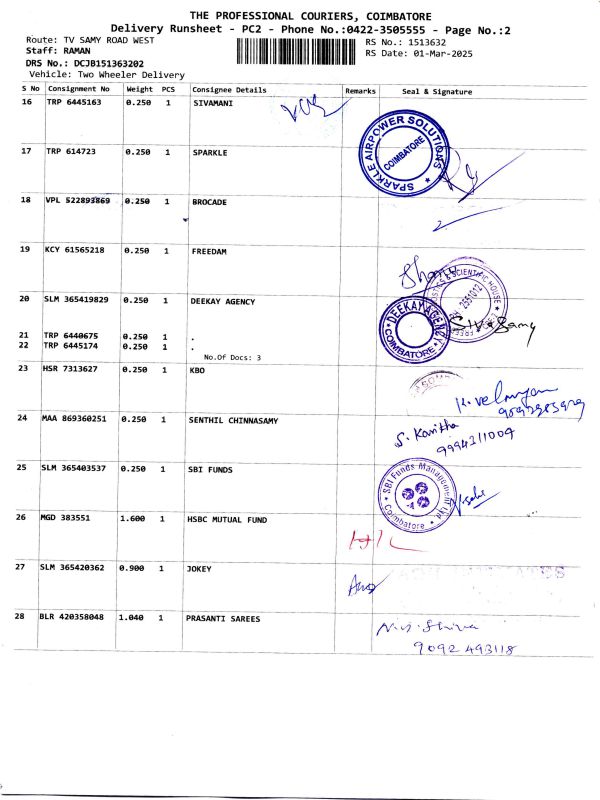 THE PROFESSIONAL COURIERS, COIMBATORE
Delivery Runsheet - PC2 - Phone No.:0422-3505555 - Page No.:2
Route: TV SAMY ROAD WEST
RS No.: 1513632
Staff: RAMAN
RS Date: 01-Mar-2025
DRS No.: DCJB151363202
Vehicle: Two Wheeler Delivery
S No Consignment No Weight PCS Consignee Details Remarks Seal & Signature
16 TRP 6445163 0.250 1 SIVAMANI
SPARKLE AIRPOWER SOLUTIONS
COIMBATORE
17 TRP 614723 0.250 1 SPARKLE
18 VPL 522893869 0.250 1 BROCADE
19 KCY 61565218 0.250 1 FREEDAM
SCIENTIFIC HOUSE
20 SLM 365419829 0.250 1 DEEKAY AGENCY
DEEKAY AGENCY
COIMBATORE
21 TRP 6440675 0.150 1 .
22 TRP 6445174 0.150 1 .
No.Of Docs: 3
23 HSR 7313627 0.250 1 KBO
24 MAA 869360251 0.250 1 SENTHIL CHINNASAMY
S. Kavitha
9994211004
25 SLM 365403537 0.250 1 SBI FUNDS
SBI Funds Management Ltd
Coimbatore
26 MGD 383551 1.600 1 HSBC MUTUAL FUND
27 SLM 365420362 0.900 1 JOKEY
28 BLR 420358048 1.040 1 PRASANTI SAREES
9092 493118